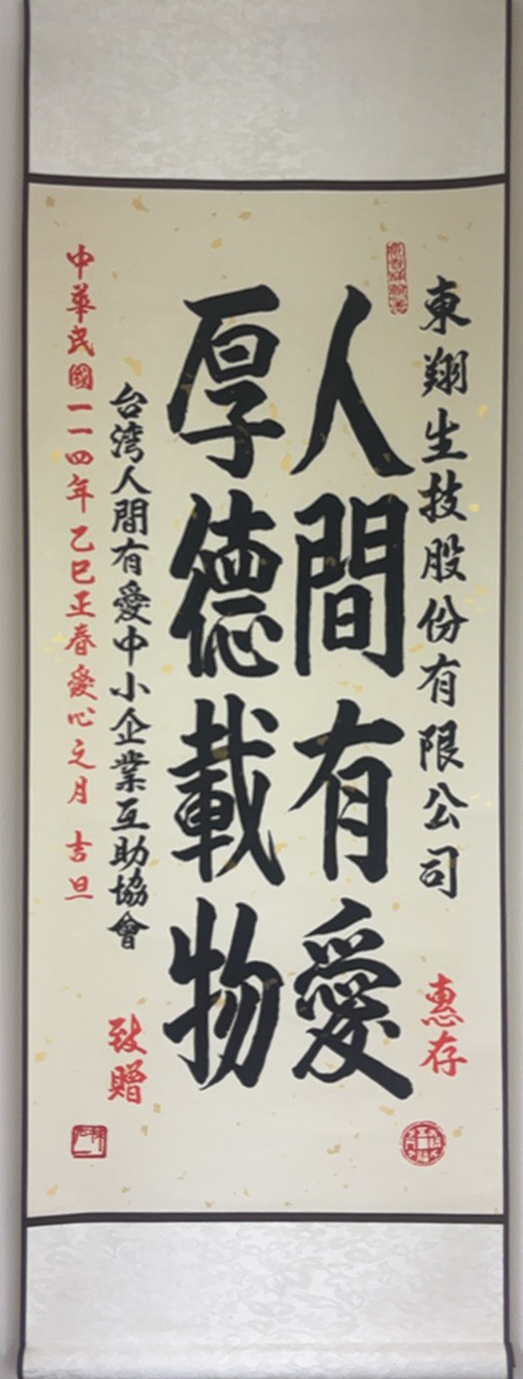 東翔生技股份有限公司 惠存
人間有愛
厚德載物
台湾人間有愛中小企業互助協會 致贈
中華民國一一四年乙巳正春愛心之月 吉旦